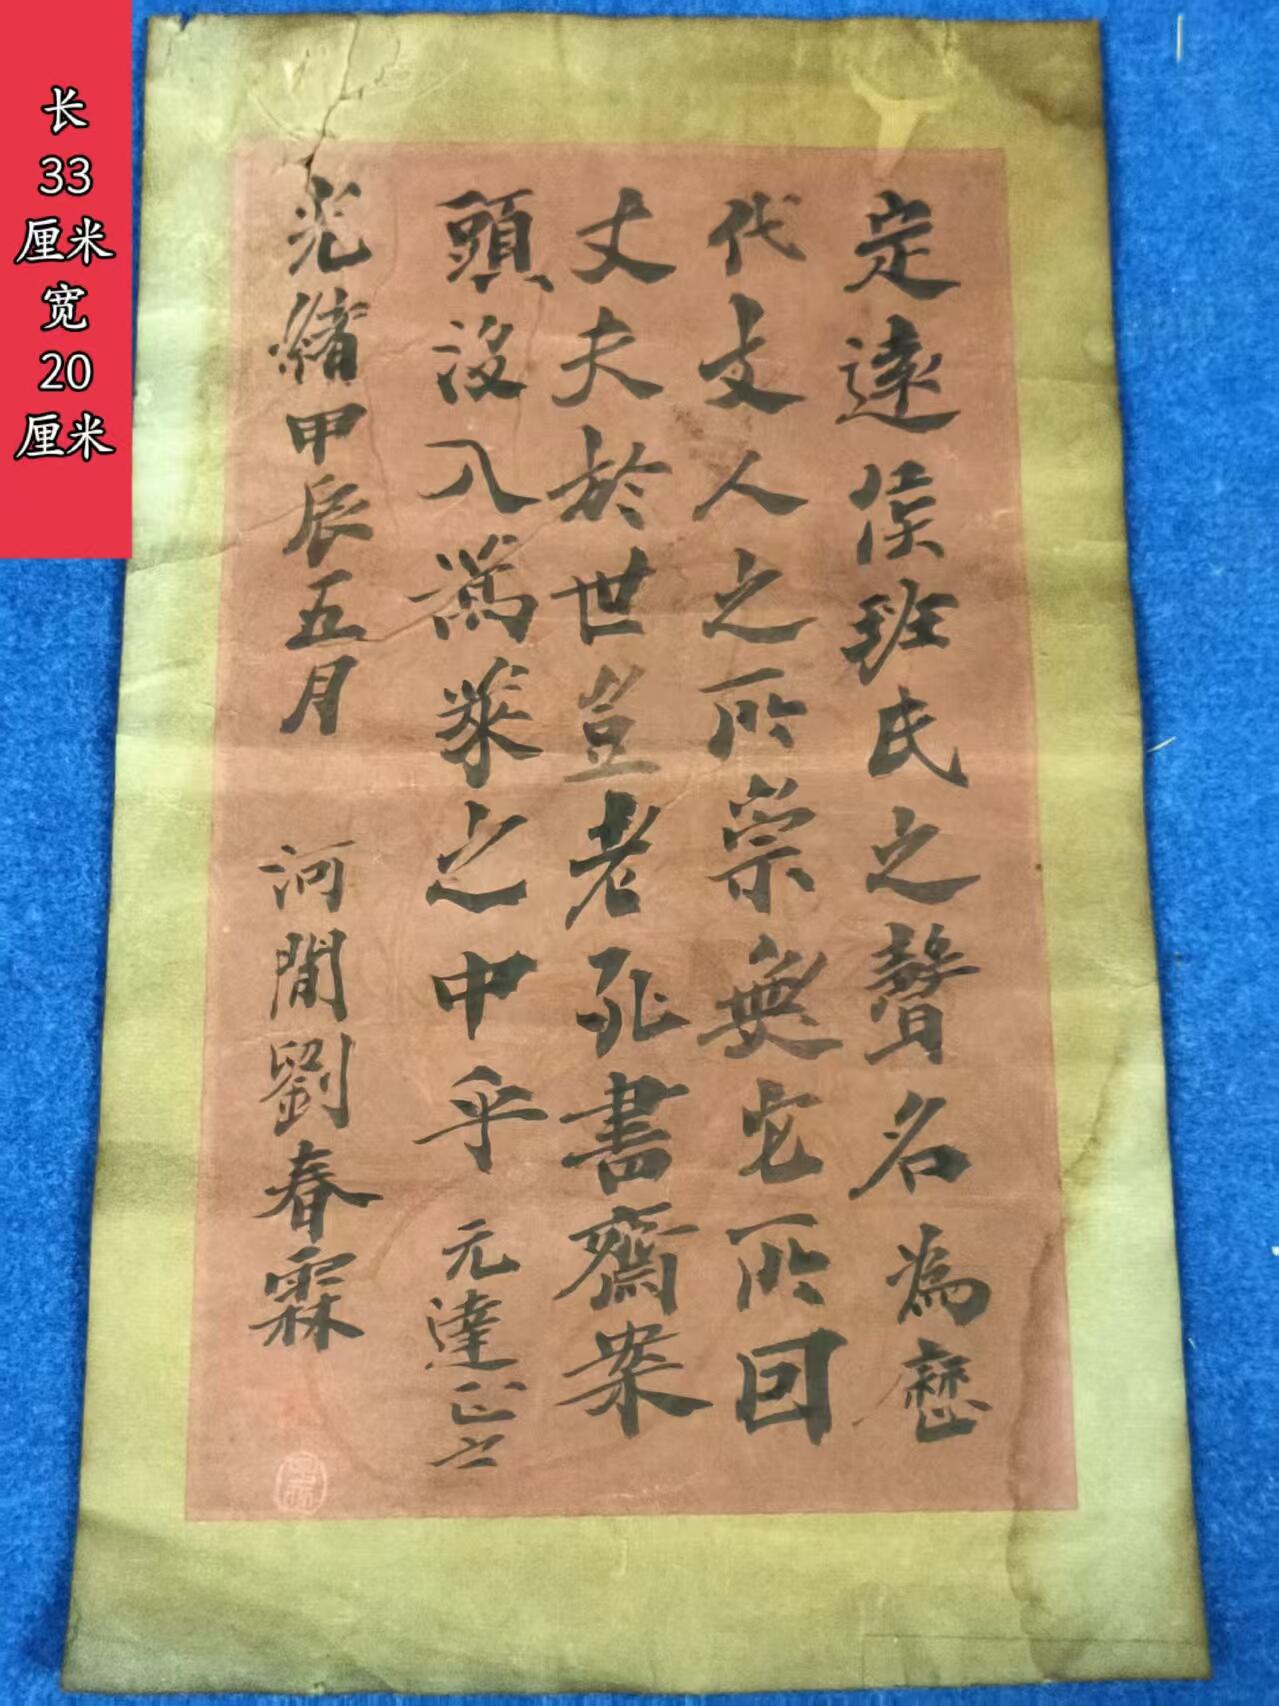 长
33
厘米
宽
20
厘米
定遠侯班氏之聲名為歷
代文人之所崇無它所回
丈夫於世豈老死書齋案
頭沒入萬蔡之中乎 元達正之
光緒甲辰五月 河間劉春霖